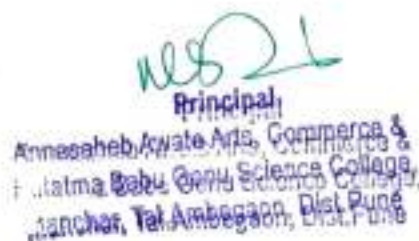 Principal
Annasaheb Awate Arts, Commerce &
Babu Genu Science College,
Tal. Ambegaon, Dist. Pune